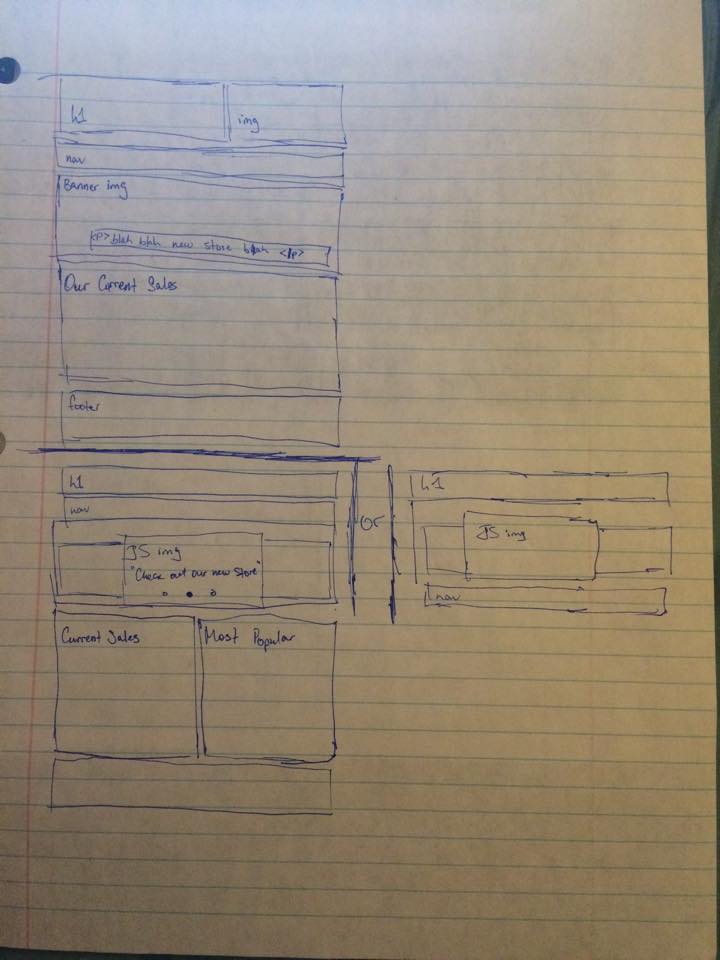 h1
img
nav
Banner img
<p>blah blah new store blah </p>
Our Current Sales
footer
h1
nav
JS img
"Check out our new Store"
Current Sales
Most Popular
or
h1
JS img
nav